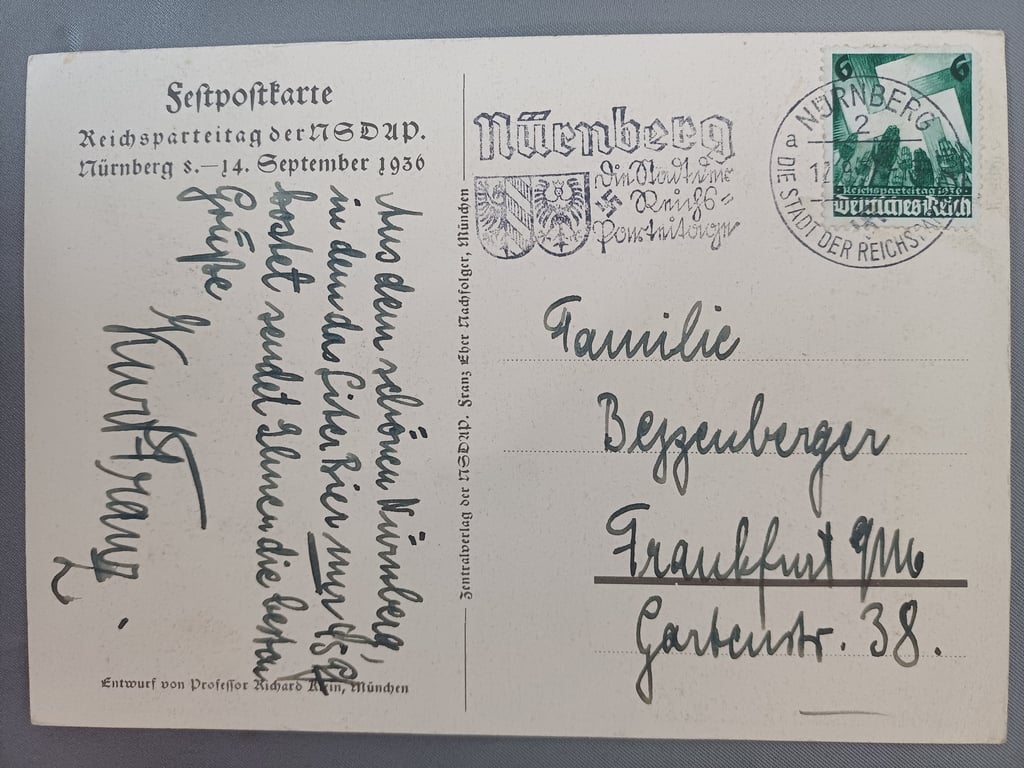 Festpostkarte
Reichsparteitag der NSDAP.
Nürnberg 8.—14. September 1936
Aus dem schönen Nürnberg,
in dem das Liter Bier nur
kostet sendet Ihnen die besten
Grüße
Kurt Franz.
Entwurf von Professor Richard Klein, München
Zentralverlag der NSDAP. Franz Eher Nachfolger, München
Nürnberg
Die Stadt der
Reichs-
parteitage
NÜRNBERG
2
a
DIE STADT DER
6 6
Reichsparteitag 1936
Deutsches Reich
Familie
Bezzenberger
Frankfurt a/M
Gartenstr. 38.